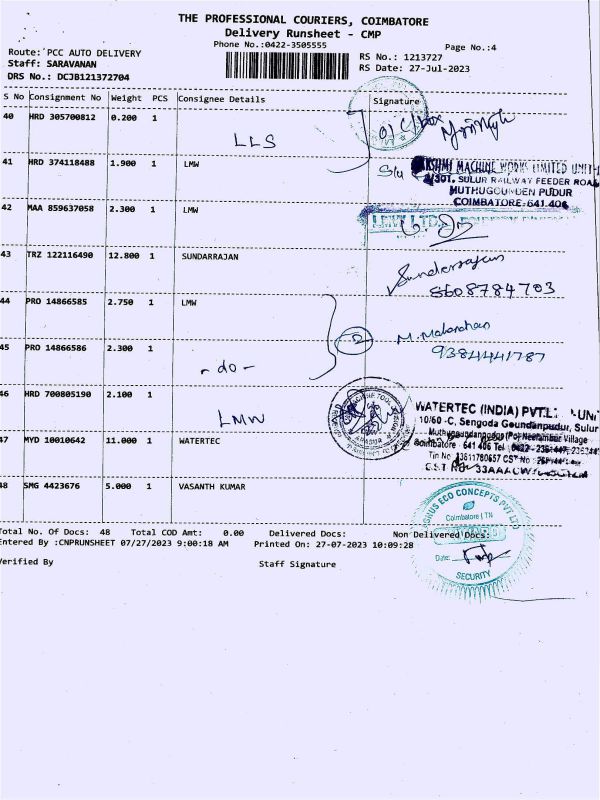 THE PROFESSIONAL COURIERS, COIMBATORE
Delivery Runsheet - CMP
Phone No.:0422-3505555
Page No.:4
Route: PCC AUTO DELIVERY
RS No.: 1213727
Staff: SARAVANAN
RS Date: 27-Jul-2023
DRS No.: DCJB121372704
S No Consignment No Weight PCS Consignee Details Signature
40 HRD 305700812 0.200 1
LLS
41 HRD 374118488 1.900 1 LMW
LAKSHMI MACHINE WORKS LIMITED UNIT-
SULUR RAILWAY FEEDER ROAD
MUTHUGOUNDEN PUDUR
COIMBATORE-641 406
42 MAA 859637058 2.300 1 LMW
43 TRZ 122116490 12.800 1 SUNDARRAJAN
Sundarrajan
8608784703
44 PRO 14866585 2.750 1 LMW
2
M. Manoharan
9384441787
45 PRO 14866586 2.300 1
- do -
46 HRD 700805190 2.100 1
LMW
WATERTEC (INDIA) PVT.L
10/60 -C, Sengoda Goundanpudur, Sulur
Muthugoundanpudur (Po) Neelambur Village
Coimbatore - 641 406 Tel
47 MYD 10010642 11.000 1 WATERTEC
48 SMG 4423676 5.000 1 VASANTH KUMAR
ECO CONCEPTS PVT LTD
Coimbatore | TN
Date:
SECURITY
Total No. Of Docs: 48 Total COD Amt: 0.00 Delivered Docs: Non Delivered Docs:
Entered By :CNPRUNSHEET 07/27/2023 9:00:18 AM Printed On: 27-07-2023 10:09:28
Verified By Staff Signature